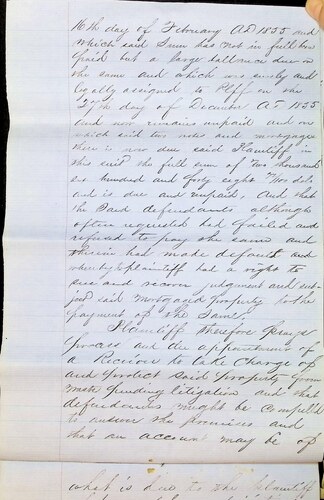 16th day of February AD 1855 and
which said Sum has not in full been
paid but a large ballance due on
the same and which was and by
legally assigned to Plff on the
22nd day of December AD 1855
And now remains unpaid and on
which said two notes and mortgages
there is now due said Plaintiff in
this suit the full sum of two thousand
six hundred and forty eight dols
and is due and unpaid, And that
the Said defendants although
often requested had failed and
refused to pay the same and
therein had made default and
whereby Plaintiff had a right to
sue and recover judgement and sub-
ject said Mortgaged Property to the
payment of the Same.
Plaintiff therefore prays
process and the appointment of
a Receiver to take Charge of
and protect said Property from
pending litigation and that
defendants might be compelld
to the premises and
that an account may be of
what is due to the Plaintiff